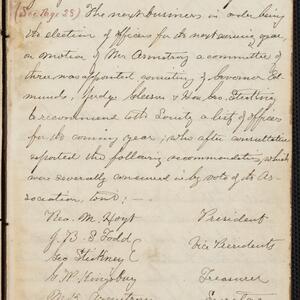 (See Page 28) The next business in order being
the election of officers for the next ensuing year,
on motion of Mr Armstrong a committee of
three was appointed consisting of Governor Ed-
munds, Judge & Hon Geo. Stickney
to recommend to the Society a list of officers
for the coming year; who after consultation
reported the following recommendation, which
was severally concurred in by vote of the As-
sociation, to wit: —
Geo. M. Hoyt President
J. B. S. Todd
Geo Stickney Vice Presidents
C. W. Kingsbury Treasurer
M. K. Armstrong